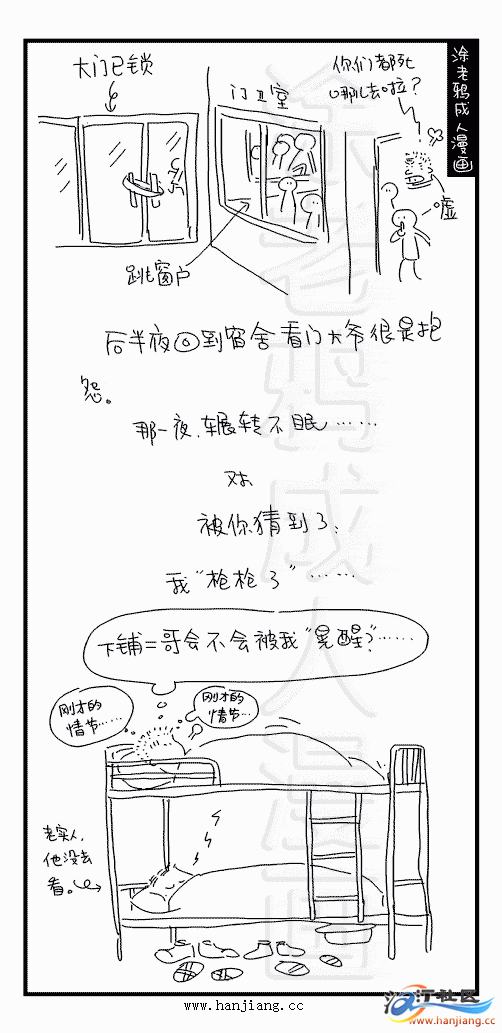 涂老鸦成人漫画
大门已锁
门卫室
你们都死
哪儿去啦？
嘘
跳窗户
后半夜回到宿舍看门大爷很是抱
怨。
那一夜，辗转不眠……
对，
被你猜到了，
我“枪枪了”……
下铺二哥会不会被我“晃醒？”……
刚才的
情节……
刚才的
情节…
老实人，
他没去
看。
涂老鸦成人漫画
www.hanjiang.cc
社区
www.hanjiang.cc